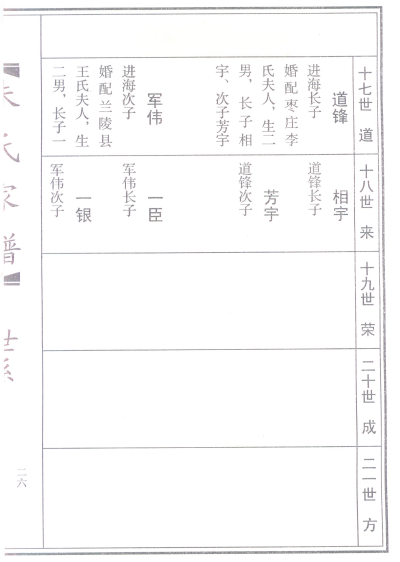 十七世 道
道锋
进海长子
婚配枣庄李
氏夫人，生二
男，长子相
宇、次子芳宇
军伟
进海次子
婚配兰陵县
王氏夫人，生
二男，长子一
十八世 来
相宇
道锋长子
芳宇
道锋次子
一臣
军伟长子
一银
军伟次子
十九世 荣
二十世 成
二一世 方
【朱氏家谱】世系
二六